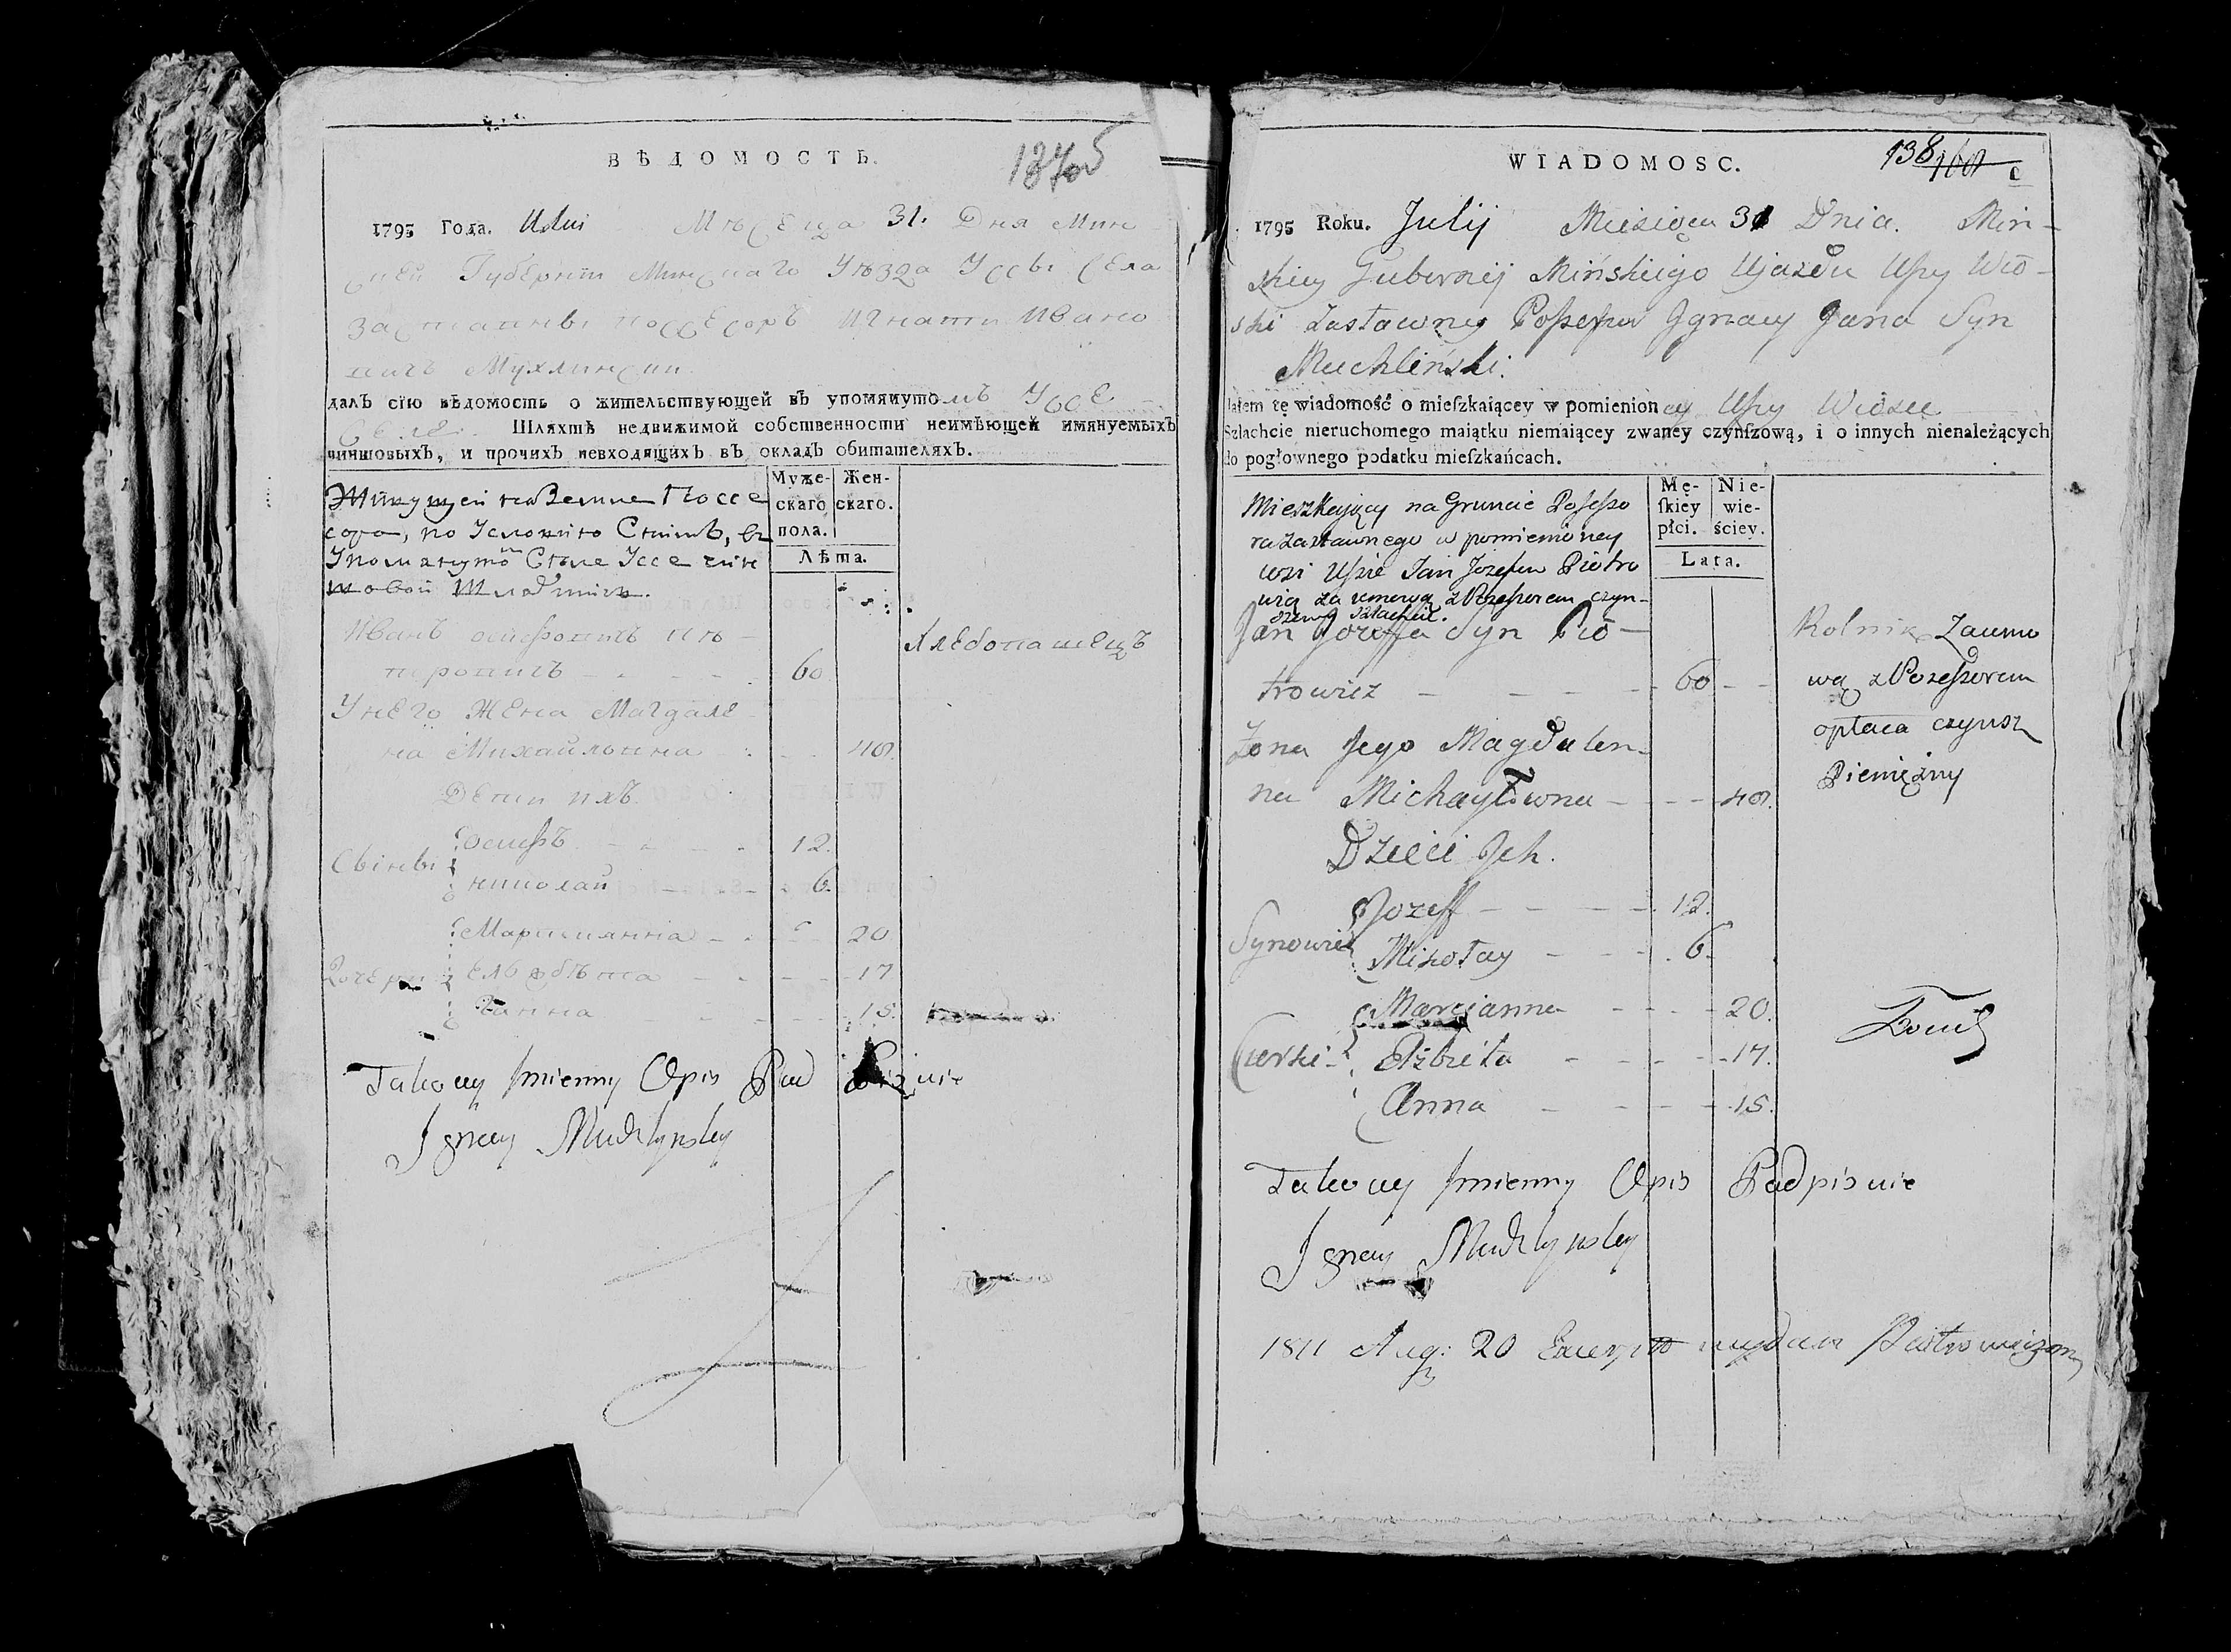 ВѢДОМОСТЬ.
1795 Года. Иulii Мѣсеца 31. Дня Мин
ской Губерніи Минскаго Уѣзда Уссы Села
заставны поссесоръ Игнати Ивано
вичъ Мухлински
далъ сїю вѣдомость о жительствующей въ упомянутомъ Уссе
Селе. Шляхтѣ недвижимой собственности неимѣющей имянуемыхъ
чиншовыхъ, и прочихъ невходящихъ въ окладъ обитателяхъ.
Муже-
скаго
пола.
Жен-
скаго.
Лѣта.
Живущей на Земле Поссе
сора, по Условию
Селе Уссе чин
шовой
Иванъ осифовичъ Пѣ-
тровичъ - - - 60
Хлебопашецъ
У него Жена Магдале
на Михайловна - - 40.
Дети ихъ.
Сыны
осифъ - - - 12.
николай - - - 6.
Дочери
Марцианна - - - 20
Ельзбѣта - - - 17
Ганна - - - 15.
Takowy Imienny Opis
Ignacy Muchlynsky
WIADOMOSC.
138
1795 Roku. Julij Miesiąca 31 Dnia. Miń-
skiey Gubernij Mińskiego Ujazdu Ussy Wio-
ski Zastawny Possessor Ignacy Jana Syn
Muchliński.
dałem tę wiadomość o mieſzkaiącey w pomienioney Ussy Wiosce
Szlachcie nieruchomego maiątku niemaiącey zwaney czynſzową, i o innych nienależących
do pogłownego podatku mieſzkańcach.
Mę-
ſkiey
płci.
Nie-
wie-
ściey.
Lata.
Mieszkający na Gruncie Possesso
ra Zastawnego w pomienioney
wsi Ussie Jan Jozefow Piotro
wicz za umową z Possessorem czyn-
szową szlachcic.
Jan Jozeffa Syn Pio-
trowicz - - - 60 - -
Rolnik Zaumo
wą z Possessorem
opłaca czynsz
Pieniężny
Żona Jego Magdalen-
na Michayłowna - - - 40.
Dzieci Ich.
Synowie
Jozeff - - - - 12.
Mikołay - - - 6.
Curki
Marcjanna - - - 20.
Elżbieta - - - 17.
Anna - - - 15.
Takowy Imienny Opis Podpisuie
Ignacy Muchlynsky
1811 Aug: 20 wydan